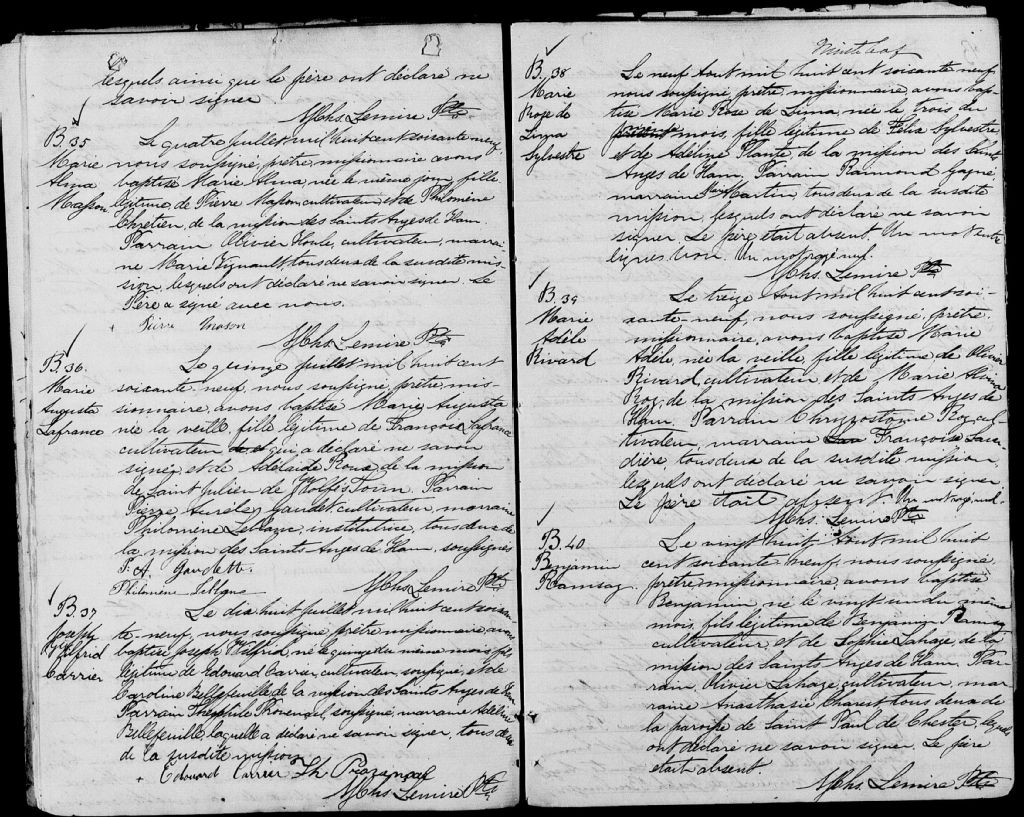 lesquels ainsi que le père ont déclaré ne
savoir signer
Mchs. Lemire Ptre
B. 35
Marie
Alma
Masson
Le quatre juillet mil huit cent soixante neuf,
nous soussigné, prêtre, missionnaire avons
baptisé Marie Alma, née le même jour, fille
légitime de Pierre Masson, cultivateur, et de Philomène
Chrétien, de la mission des Saints Anges de Ham
Parrain Olivier Houle, cultivateur, marrai
ne Marie Vignault, tous deux de la susdite mis-
sion, lesquels ont déclaré ne savoir signer. Le
Père a signé avec nous.
+ Pierre Mason
Mchs. Lemire Ptre
B. 36.
Marie
Augusta
Lafrance
Le quinze juillet mil huit cent
soixante neuf, nous soussigné, prêtre, mis-
sionnaire, avons baptisé Marie Augusta
née la veille fille légitime de François Lafrance
cultivateur qui a déclaré ne savoir
signer et de Adélaïde Roux, de la mission
de Saint Julien de Wolfestown. Parrain
Pierre Aurèle Gaudet cultivateur, marraine
Philomène Leblanc, institutrice, tous deux de
la mission des Saints Anges de Ham, soussignés
P. A. Gaudett.
Philomène Leblanc
Mchs. Lemire Ptre
B. 37
Joseph
Wilfrid
Carrier
Le dix huit juillet mil huit cent soixan
te-neuf, nous soussigné prêtre missionnaire, avons
baptisé Joseph Wilfrid, né le quinze du même mois fils
légitime de Edouard Carrier, cultivateur, soussigné, et de
Caroline Bellefeuille, de la mission des Saints Anges de Ham
Parrain Théophile Provençal, soussigné, marraine Adeline
Bellefeuille, laquelle a déclaré ne savoir signer, tous deux
de la susdite mission
+ Edouard Carrier Th Provençal
Mchs. Lemire Ptre
B. 38
Marie
Rose de
Lima
Sylvestre
Le neuf août mil huit cent soixante neuf,
nous soussigné, prêtre, missionnaire, avons bap-
tisé Marie Rose de Lima, née le trois du
présent mois, fille légitime de Félix Sylvestre
et de Adéline Plante, de la mission des Saints
Anges de Ham, Parrain Raimond Gagné
marraine Martin, tous deux de la susdite
mission, lesquels ont déclaré ne savoir
signer. Le père était absent. Un mot entre
lignes bon. Un mot rayé nul.
Mchs. Lemire Ptre
B. 39
Marie
Adèle
Rivard
Le treize août mil huit cent soi-
xante-neuf, nous soussigné, prêtre,
missionnaire, avons baptisé Marie
Adèle, née la veille, fille légitime de Olivier
Rivard, cultivateur, et de Marie Alma
Roy, de la mission des Saints Anges de
Ham. Parrain Chrysostome Roy, cul-
tivateur, marraine Françoise
dière, tous deux de la susdite mission,
lesquels ont déclaré ne savoir signer
Le père était absent. Un mot rayé nul.
Mchs. Lemire Ptre
B. 40
Benjamin
Ramsay
Le vingt huit août mil huit
cent soixante neuf, nous soussigné,
prêtre missionnaire, avons baptisé
Benjamin, né le vingt un du même
mois, fils légitime de Benjamin Ramsay
cultivateur et de Sophie Lahaye, de la
mission des Saints Anges de Ham. Par-
rain, Olivier Lahaye, cultivateur, mar
raine Anasthasie Charest tous deux de
la paroisse de Saint Paul de Chester, lesquels
ont déclaré ne savoir signer. Le père
était absent.
Mchs. Lemire Ptre